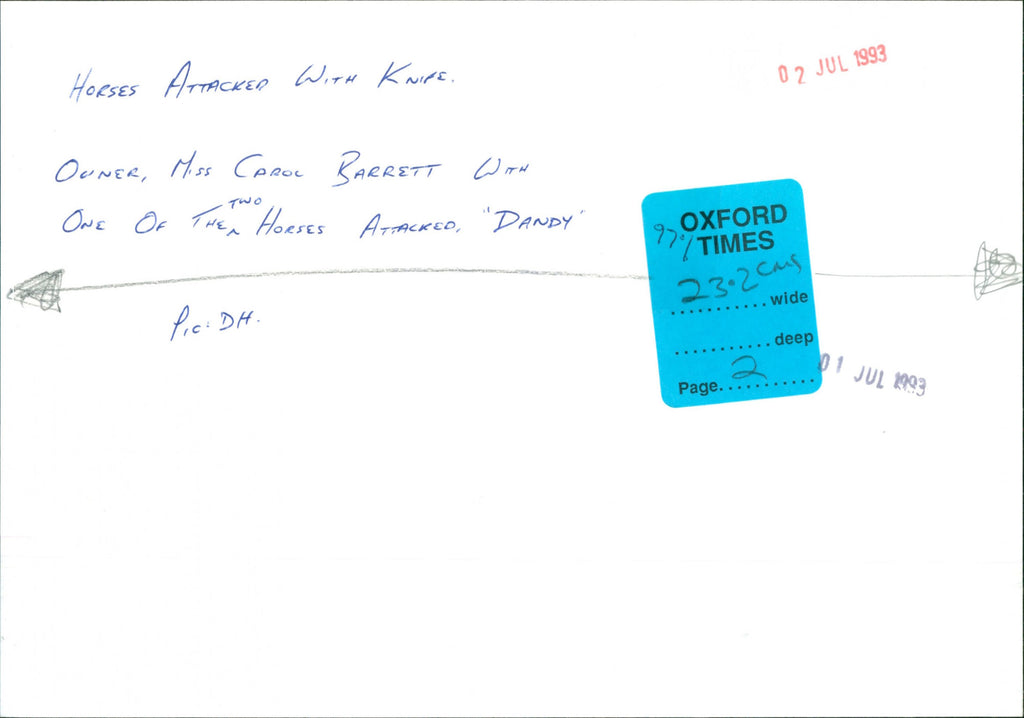 HORSES ATTACKED WITH KNIFE.
02 JUL 1993
OWNER, MISS CAROL BARRETT WITH
ONE OF THE TWO HORSES ATTACKED, "DANDY"
PIC: DH.
OXFORD
TIMES
97%
23.2 cms
..........wide
..........deep
Page..2........
01 JUL 1993